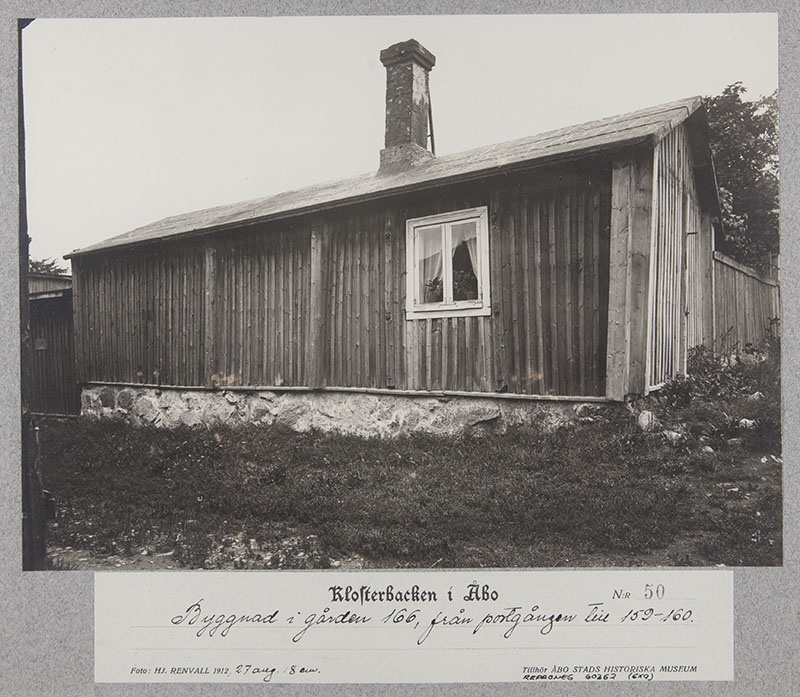 Klosterbacken i Åbo
N:R 50
Byggnad i gården 166, från portgången till 159-160.
Foto: HJ. RENVALL 1912, 27 aug. 18 cm.
Tillhör ÅBO STADS HISTORISKA MUSEUM
REPRONEG 60262 (6x9)